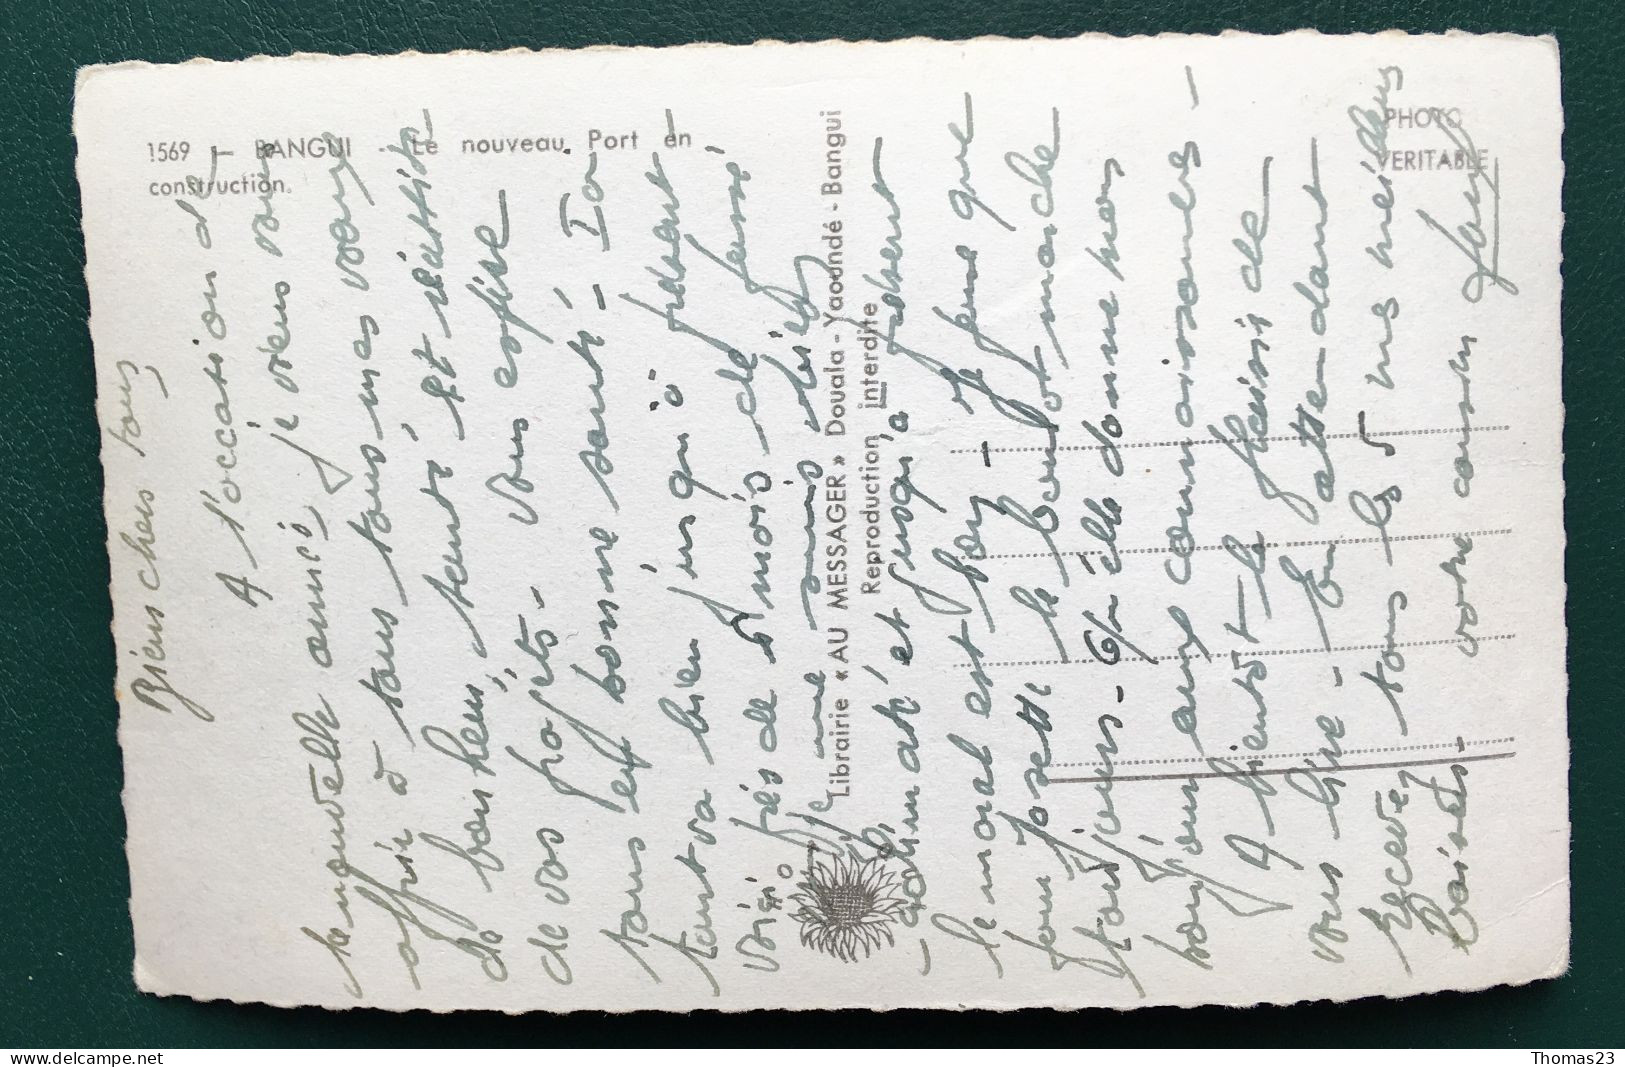 1569 — BANGUI - Le nouveau Port en
construction.
PHOTO
VERITABLE
Librairie « AU MESSAGER » Douala - Yaoundé - Bangui
Reproduction interdite
Biens chers tous
A l'occasion de
la nouvelle année, je viens vous
offrir à tous tous mes voeux
de bonheur, santé et réussite
de vos projets - Vous espère
tous en bonne santé - Ici
tout va bien jusqu'à présent
voici près de 5 mois de passé
je me suis bien
acclimaté et jusqu'à présent
le moral est bon - Je pense que
pour Josette le boulot marche
toujours - elle donne mon
bonjour aux connaissances -
A bientôt le plaisir de
vous lire - En attendant
Recevez tous les 5 mes meilleurs
Baisers - votre cousin
www.delcampe.net
Thomas23